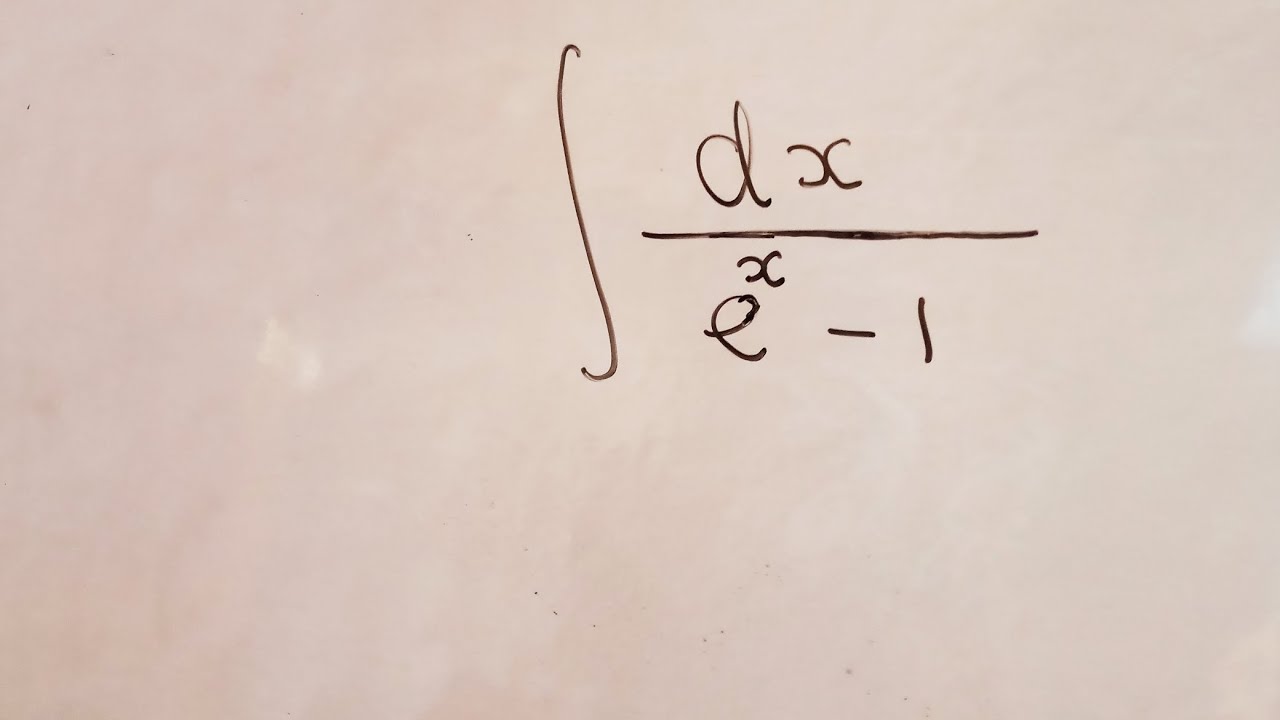 ∫ dx / (e^x - 1)